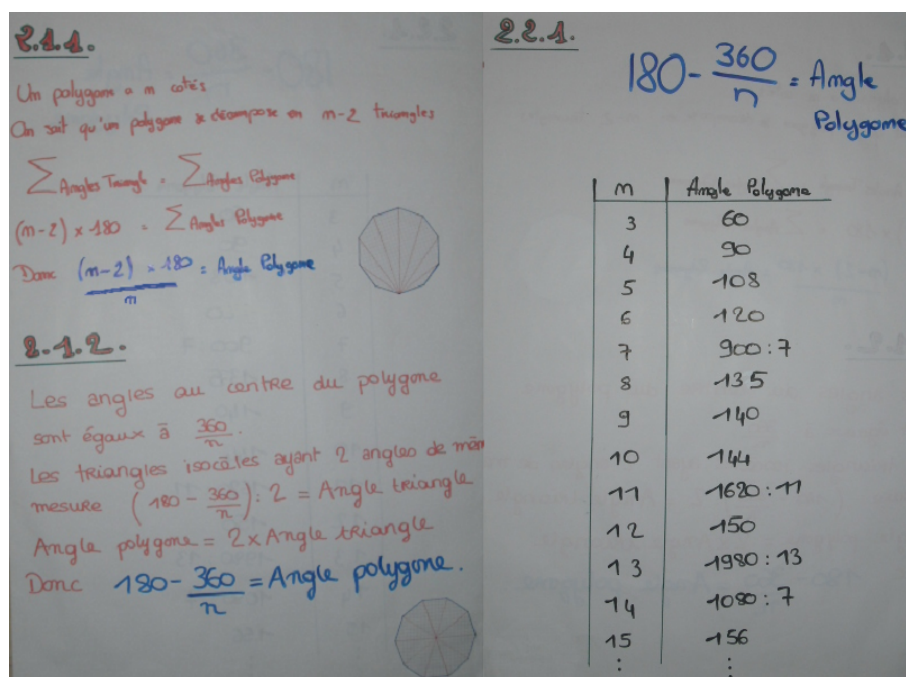 2.1.1.
Un polygone a n cotés
On sait qu'un polygone se décompose en n-2 triangles
∑ Angles Triangle = ∑ Angles Polygone
(n-2) x 180 = ∑ Angles Polygone
Donc (n-2) x 180 / n = Angle Polygone
2.1.2.
Les angles au centre du polygone
sont égaux à 360/n.
Les triangles isocèles ayant 2 angles de mêm
mesure (180 - 360/n) : 2 = Angle triangle
Angle polygone = 2 x Angle triangle
Donc 180 - 360/n = Angle polygone.
2.2.1.
180 - 360/n = Angle
Polygone
n | Angle Polygone
3 60
4 90
5 108
6 120
7 900:7
8 135
9 140
10 144
11 1620:11
12 150
13 1980:13
14 1080:7
15 156
⋮ ⋮